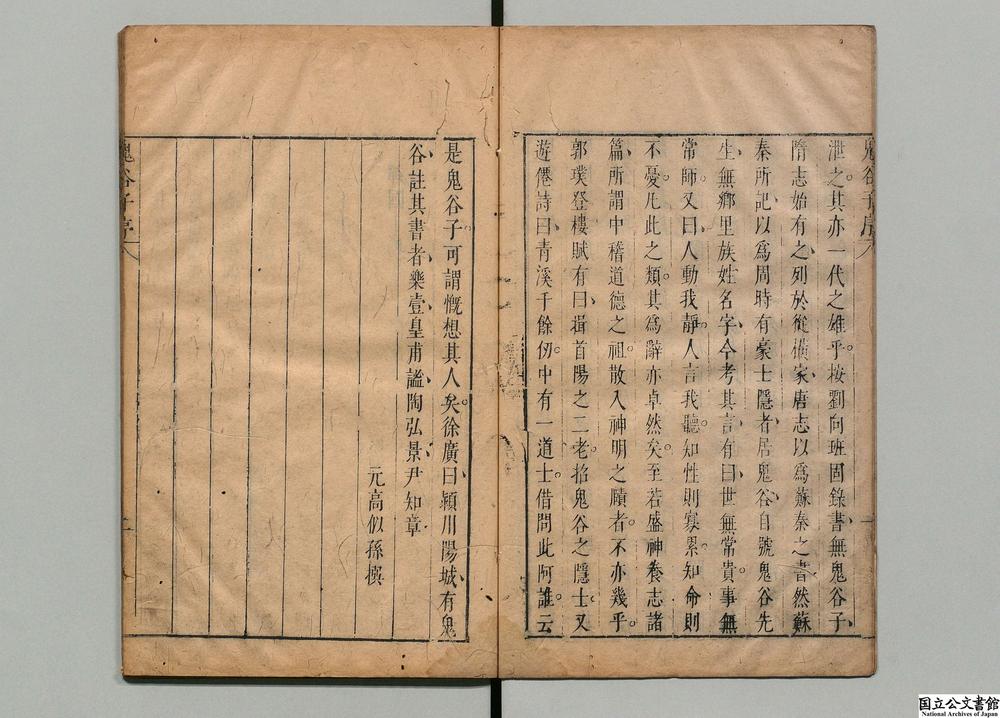 鬼谷子序
泄之其亦一代之雄乎按劉向班固錄書無鬼谷子
隋志始有之列於從橫家唐志以為蘇秦之書然蘇
秦所記以爲周時有豪士隱者居鬼谷自號鬼谷先
生無鄉里族姓名字今考其言有曰世無常貴事無
常師又曰人動我靜人言我聽知性則寡累知命則
不憂凡此之類其爲辭亦卓然矣至若盛神養志諸
篇所謂中稽道德之祖散入神明之頤者不亦幾乎
郭璞登樓賦有曰揖首陽之二老招鬼谷之隱士又
遊僊詩曰青溪千餘仞中有一道士借問此阿誰云
是鬼谷子可謂慨想其人矣徐廣曰潁川陽城有鬼
谷註其書者樂壹皇甫謐陶弘景尹知章
元高似孫撰
鬼谷子序
国立公文書館
National Archives of Japan